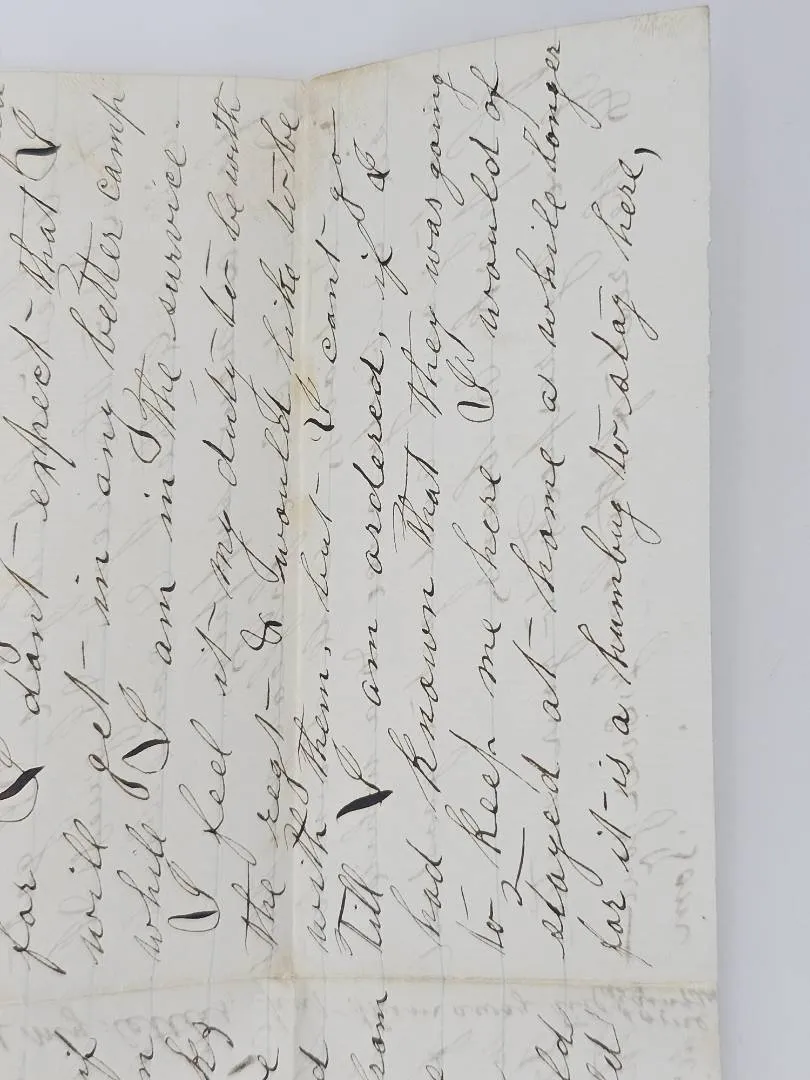 for I dont expect that I
will get in any better camp
while I am in the survice.
I feel it my duty to be with
the regt & I would like to be
with them, but I cant go
Till I am ordered, if I
had known that they was going
to keep me here I would of
stayed at home a while longer
for it is a humbug to stay here,
if
from